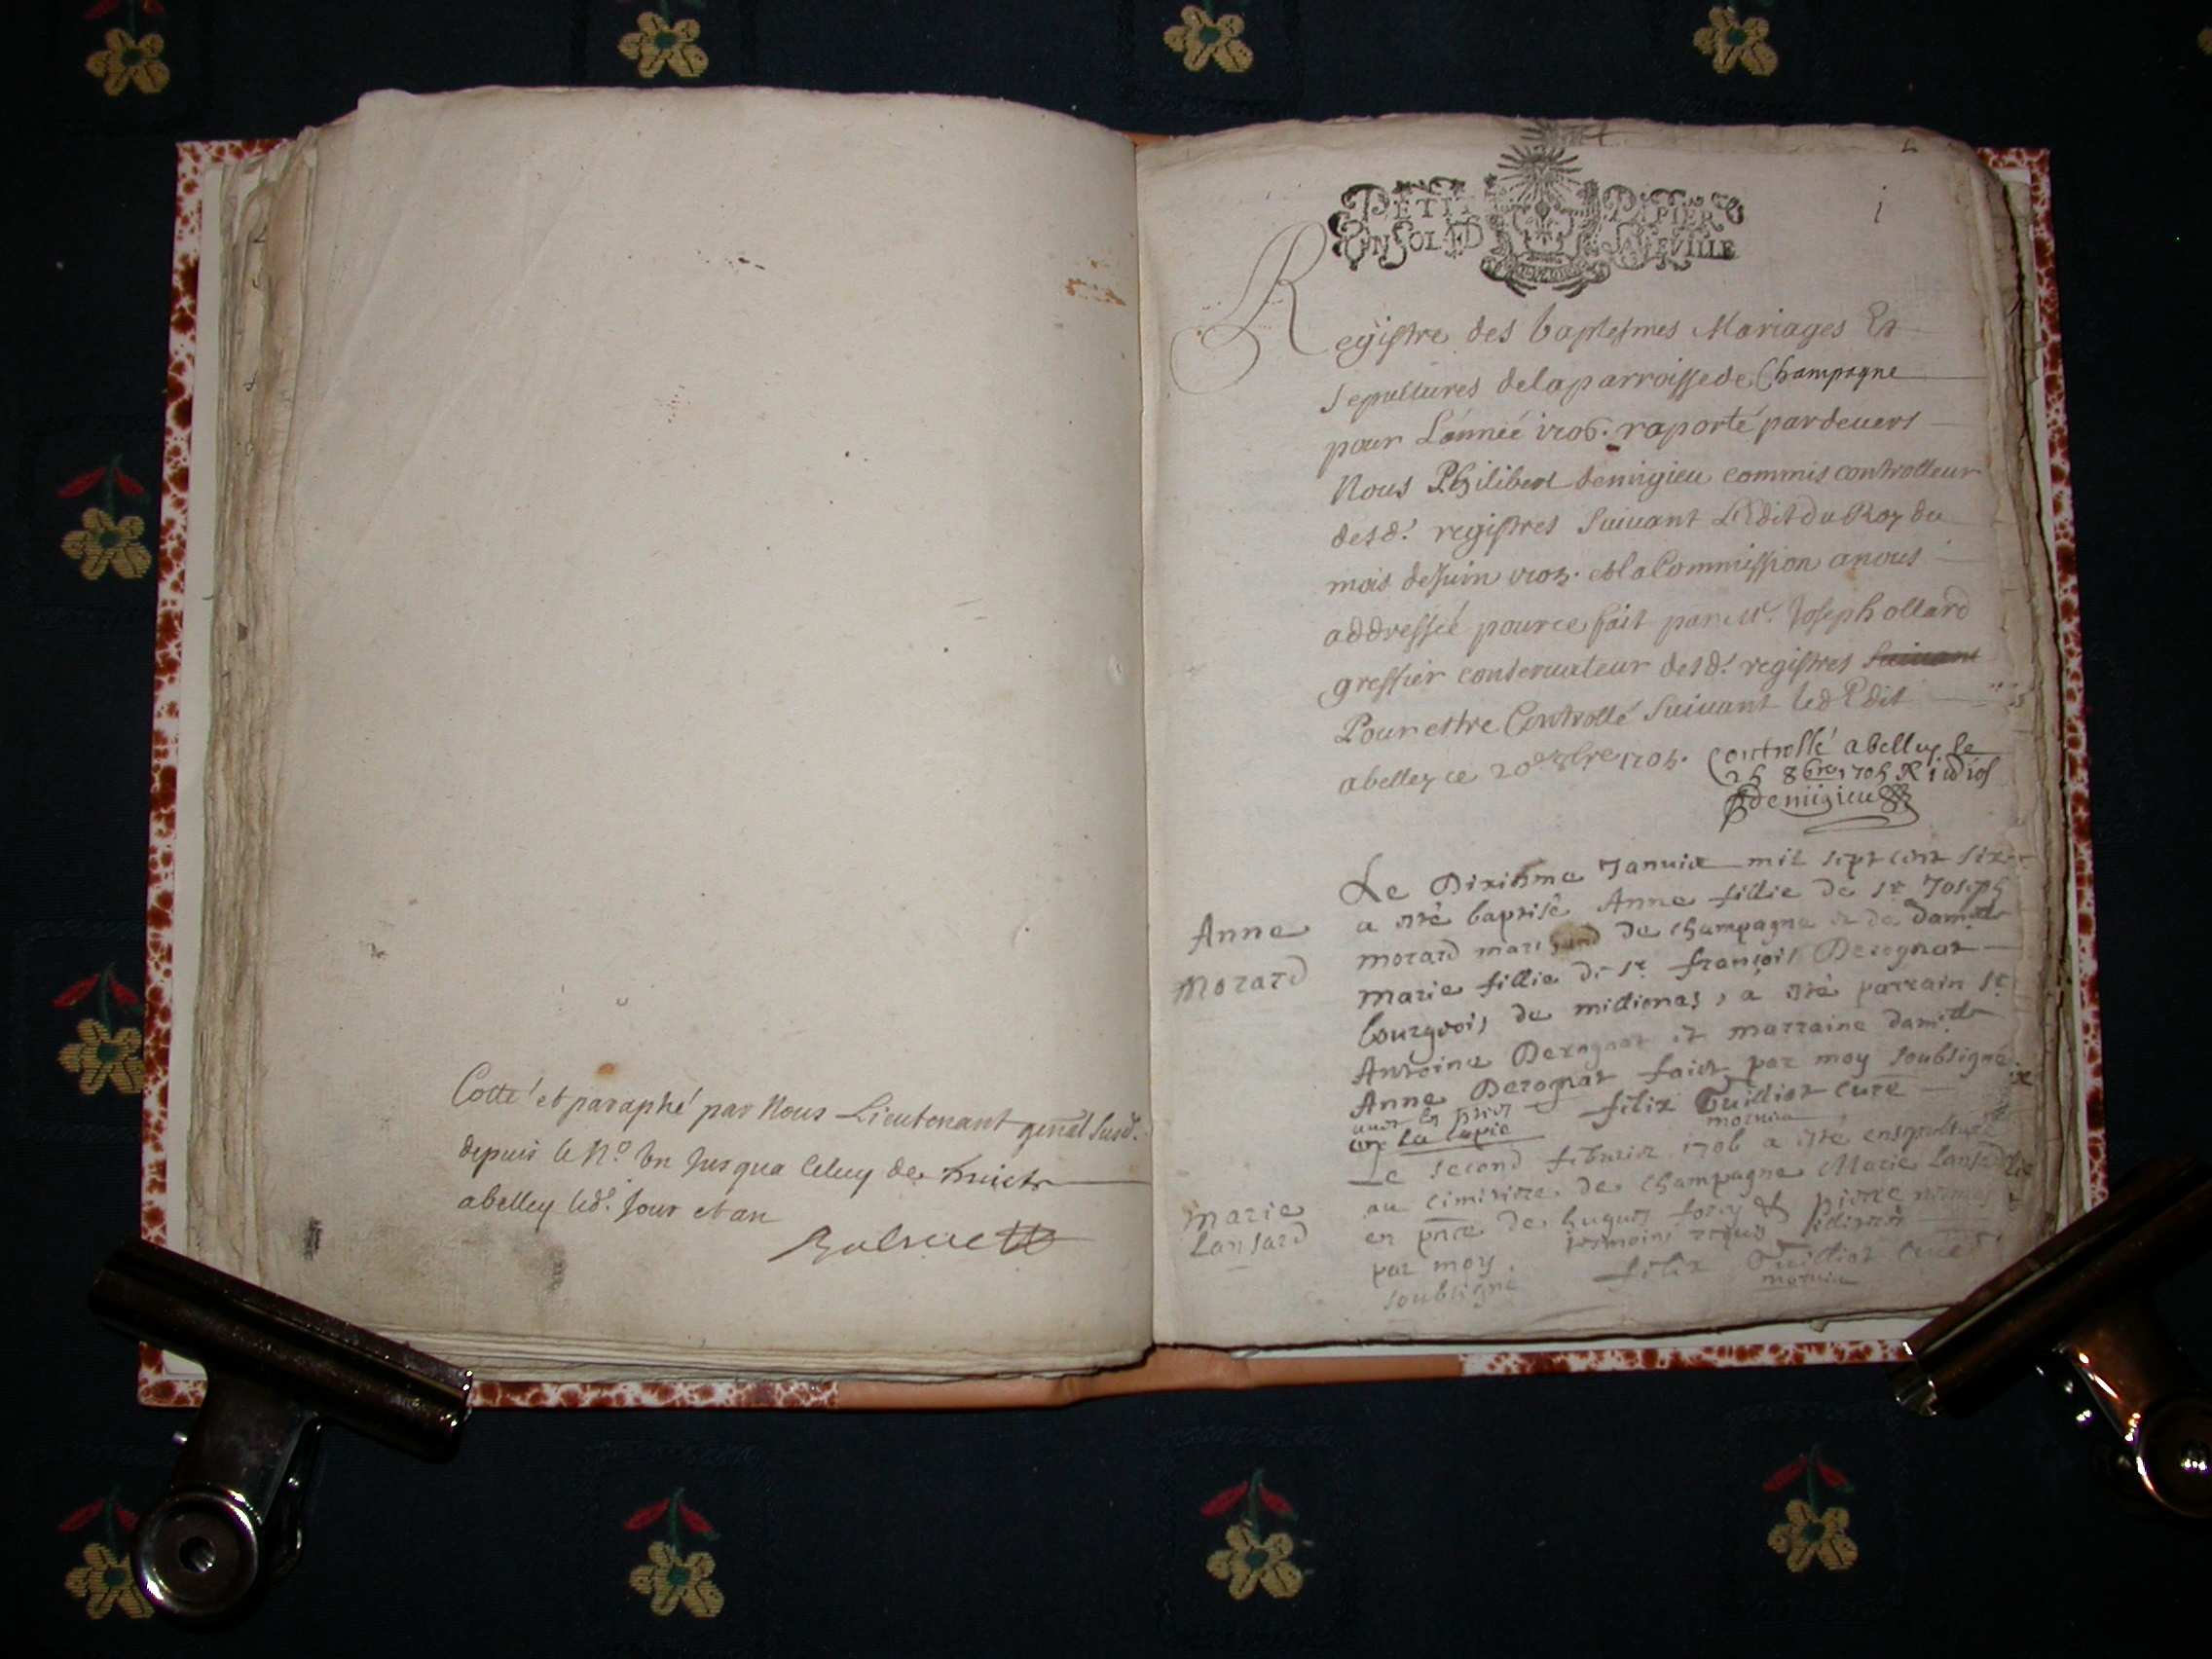 Cotté et paraphé par Nous Lieutenant genal susd.
depuis le No. Un Jusqua Celuy de huict
abelley led. Jour et an
PETIT PAPIER
UN SOL 4D LA FEVILLE
i
Registre des baptesmes Mariages Et
sepultures delaparroissede Champagne
pour L'année 1706. raporté pardevers
Nous Philibert demigieu commis controlleur
desd. registres Suivant L'Edit du Roy du
mois deJuin 1705. et la Commission anous
addressée pource fait par Mr. Joseph ollard
greffier conservateur desd. registres suivant
Pour estre Controllé Suivant led Edit
abelley ce 20e 8bre 1705.
Controllé abelley le
25 8bre 1705
demigieu
Anne
Morard
Le Dixihme Januier mil sept cent six
a esté baptisé Anne fillie de sr Joseph
morard marchand de champagne et de damlle
marie fillie de sr françois Derognat
bourgois de millionas, a esté parrain sr
Antoine Derognat et marraine damlle
Anne Derognat faict par moy soubsigné
felix Cuilliot curé
marie
Lansard
Le second febvrier 1706 a esté ensepulturé
au cimistire de champagne Marie Lansard
en pnce de hugues et pierre
par moy tesmoins requis
soubsigné felix Cuilliot curé